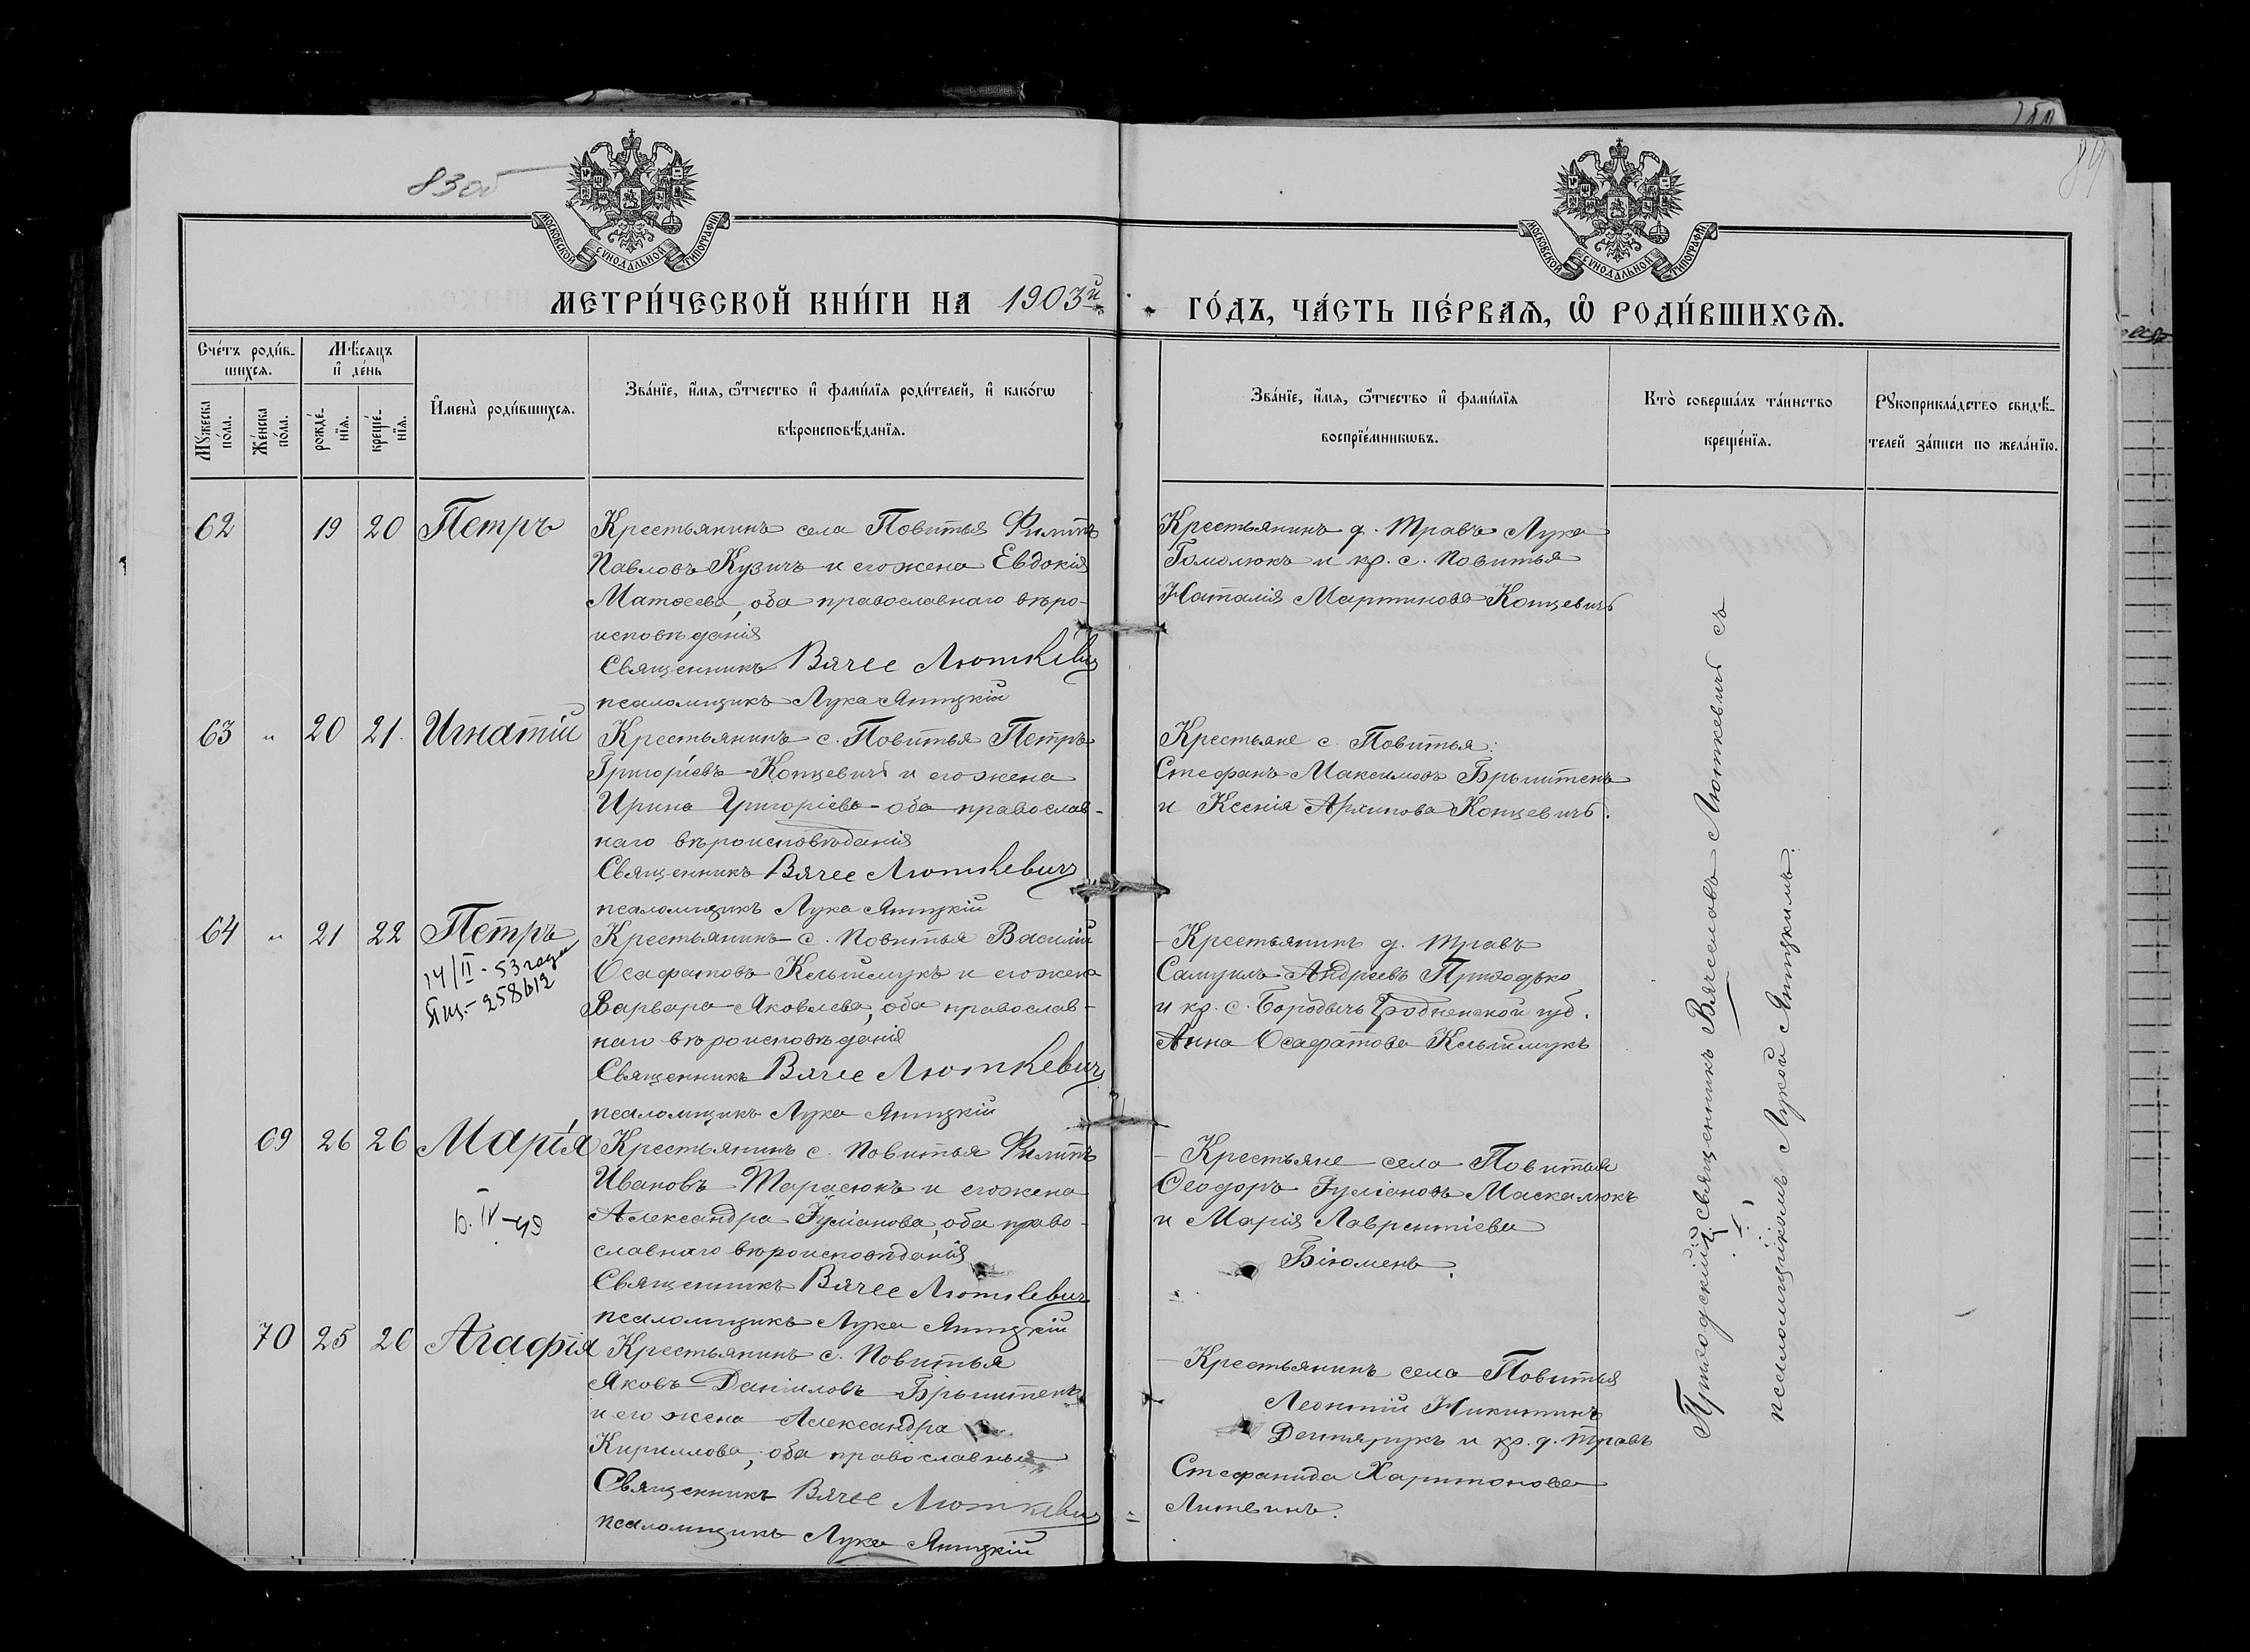 83об
84
МОСКОВСКОЙ СУНОДАЛЬНОЙ ТИПОГРАФІИ
МОСКОВСКОЙ СУНОДАЛЬНОЙ ТИПОГРАФІИ
МЕТРИ́ЧЕСКОЙ КНИ́ГИ НА 1903й
ГО́ДЪ, ЧА́СТЬ ПЕ́РВАѦ, Ѽ РОДИ́ВШИХСѦ.
Сче́тъ роди́в-
шихсѧ.
Мѣ́сѧцъ
и҆ де́нь
Мꙋ́жеска
по́ла.
Же́нска
по́ла.
рожде́-
нїѧ.
креще́-
нїѧ.
И҆мена̀ роди́вшихсѧ.
Зва́нїе, и҆́мѧ, ѻ҆́тчество и҆ фами́лїѧ роди́телей, и҆ како́гѡ
вѣроисповѣ́данїѧ.
Зва́нїе, и҆́мѧ, ѻ҆́тчество и҆ фами́лїѧ
воспрїе́мникѡвъ.
Кто̀ соверша́лъ та́инство
креще́нїѧ.
Рꙋкоприкла́дство свидѣ́-
телей за́писи по жела́нїю.
62 19 20 Петръ
Крестьянинъ села Повитья Филиппъ
Павловъ Кузичъ и его жена Евдокія
Матѳеева, оба православнаго вѣро-
исповѣданія
Священникъ Вячес Люткевич
псаломщикъ Лука Яницкій
Крестьянинъ д. Травъ Лука
Гомолюкъ и кр. с. Повитья
Наталія Мартинова Концевичъ
63 " 20 21. Игнатій
Крестьянинъ с. Повитья Петръ
Григоріевъ Концевичъ и его жена
Ирина Григоріева оба православ-
наго вѣроисповѣданія
Священникъ Вячес Люткевич
псаломщикъ Лука Яницкій
Крестьяне с. Повитья:
Стефанъ Максимовъ Брыштенъ
и Ксенія Архипова Концевичъ.
64 " 21 22 Петръ
14/II - 53 года
Яц.- 258612
Крестьянинъ с. Повитья Василій
Осафатовъ Кельшмукъ и его жена
Варвара Яковлева, оба православ-
наго вѣроисповѣданія
Священникъ Вячес Люткевич
псаломщикъ Лука Яницкій
- Крестьянинъ д. Травъ
Самуилъ Андреевъ Приходько
и кр. с. Бородичъ Гродненской губ.
Анна Осафатова Кельшмукъ
69 26 26 Марія
10. IV-49
Крестьянинъ с. Повитья Филиппъ
Ивановъ Тарасюкъ и его жена
Александра Іуліанова, оба право-
славнаго вѣроисповѣданія
Священникъ Вячес Люткевич
псаломщикъ Лука Яницкій
- Крестьяне села Повитья
Ѳеодоръ Іуліановъ Маскалюкъ
и Марія Лаврентіева
Біюменъ.
70 25 26 Агафія
Крестьянинъ с. Повитья
Яковъ Даниловъ Брыштенъ
и его жена Александра
Кириллова, оба православные
Священникъ Вячес Люткевич
псаломщикъ Лука Яницкій
- Крестьянинъ села Повитья
Леонтій Никитинъ
и кр. д. Травъ
Стефанида Харитонова
Литвинъ.
Приходскій священникъ Вячеславъ Люткевичъ съ
псаломщикомъ Лукой Яницкимъ.